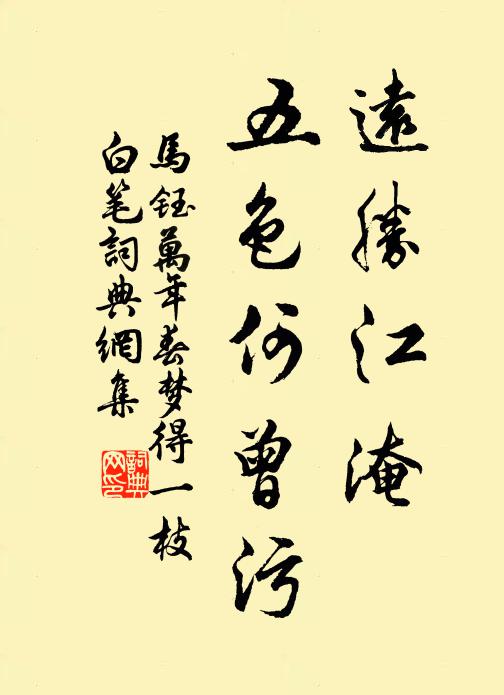 遠勝江淹
五色何曾污
馬鈺萬年春梦得一枝
白笔詞典網集
詞典网印